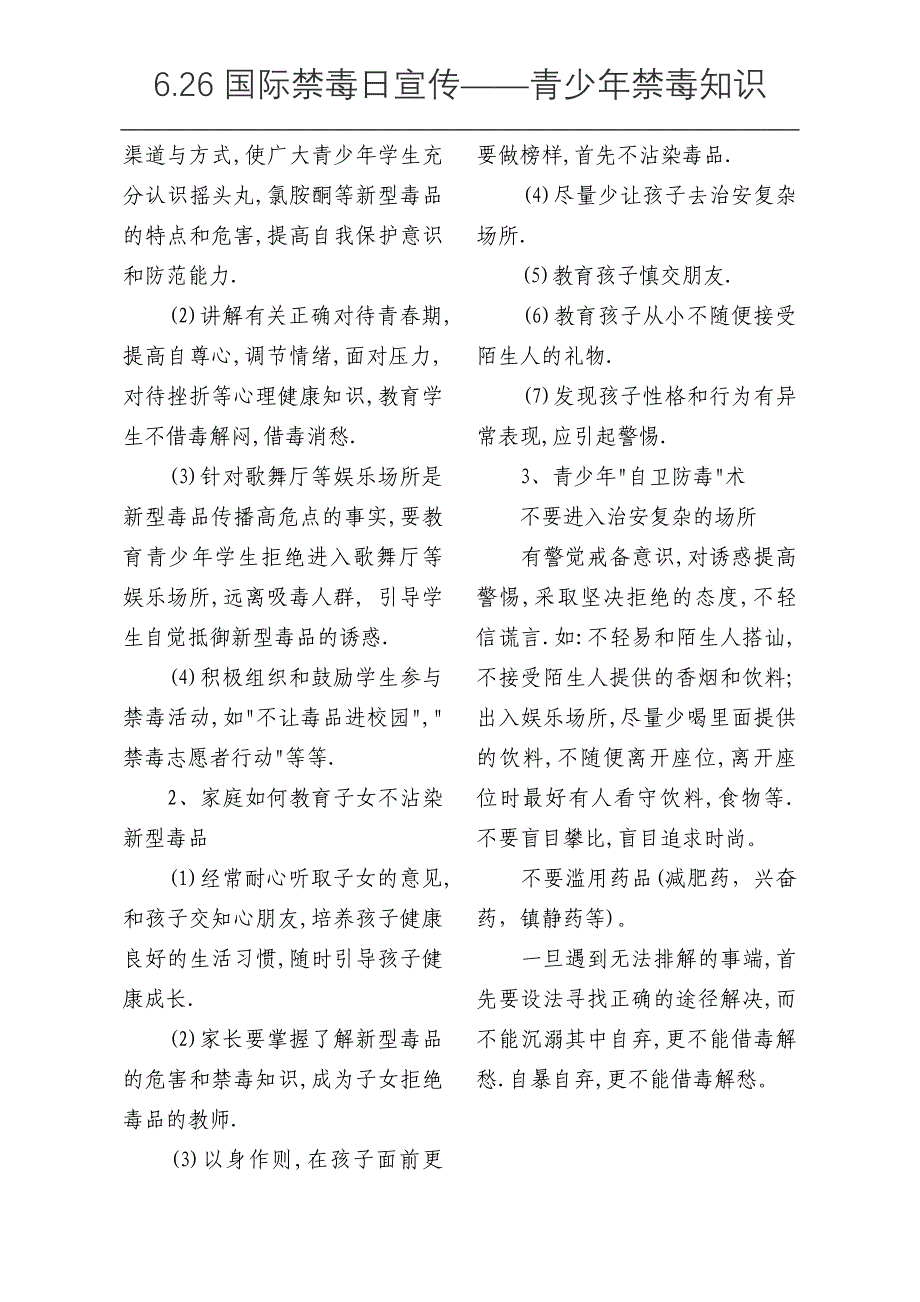 6.26 国际禁毒日宣传——青少年禁毒知识
渠道与方式,使广大青少年学生充
分认识摇头丸,氯胺酮等新型毒品
的特点和危害,提高自我保护意识
和防范能力.
(2)讲解有关正确对待青春期,
提高自尊心,调节情绪,面对压力,
对待挫折等心理健康知识,教育学
生不借毒解闷,借毒消愁.
(3)针对歌舞厅等娱乐场所是
新型毒品传播高危点的事实,要教
育青少年学生拒绝进入歌舞厅等
娱乐场所,远离吸毒人群, 引导学
生自觉抵御新型毒品的诱惑.
(4)积极组织和鼓励学生参与
禁毒活动,如"不让毒品进校园","
禁毒志愿者行动"等等.
2、家庭如何教育子女不沾染
新型毒品
(1)经常耐心听取子女的意见,
和孩子交知心朋友,培养孩子健康
良好的生活习惯,随时引导孩子健
康成长.
(2)家长要掌握了解新型毒品
的危害和禁毒知识,成为子女拒绝
毒品的教师.
(3)以身作则,在孩子面前更
要做榜样,首先不沾染毒品.
(4)尽量少让孩子去治安复杂
场所.
(5)教育孩子慎交朋友.
(6)教育孩子从小不随便接受
陌生人的礼物.
(7)发现孩子性格和行为有异
常表现,应引起警惕.
3、青少年"自卫防毒"术
不要进入治安复杂的场所
有警觉戒备意识,对诱惑提高
警惕,采取坚决拒绝的态度,不轻
信谎言.如:不轻易和陌生人搭讪,
不接受陌生人提供的香烟和饮料;
出入娱乐场所,尽量少喝里面提供
的饮料,不随便离开座位,离开座
位时最好有人看守饮料,食物等.
不要盲目攀比,盲目追求时尚。
不要滥用药品(减肥药，兴奋
药，镇静药等)。
一旦遇到无法排解的事端,首
先要设法寻找正确的途径解决,而
不能沉溺其中自弃,更不能借毒解
愁.自暴自弃,更不能借毒解愁。